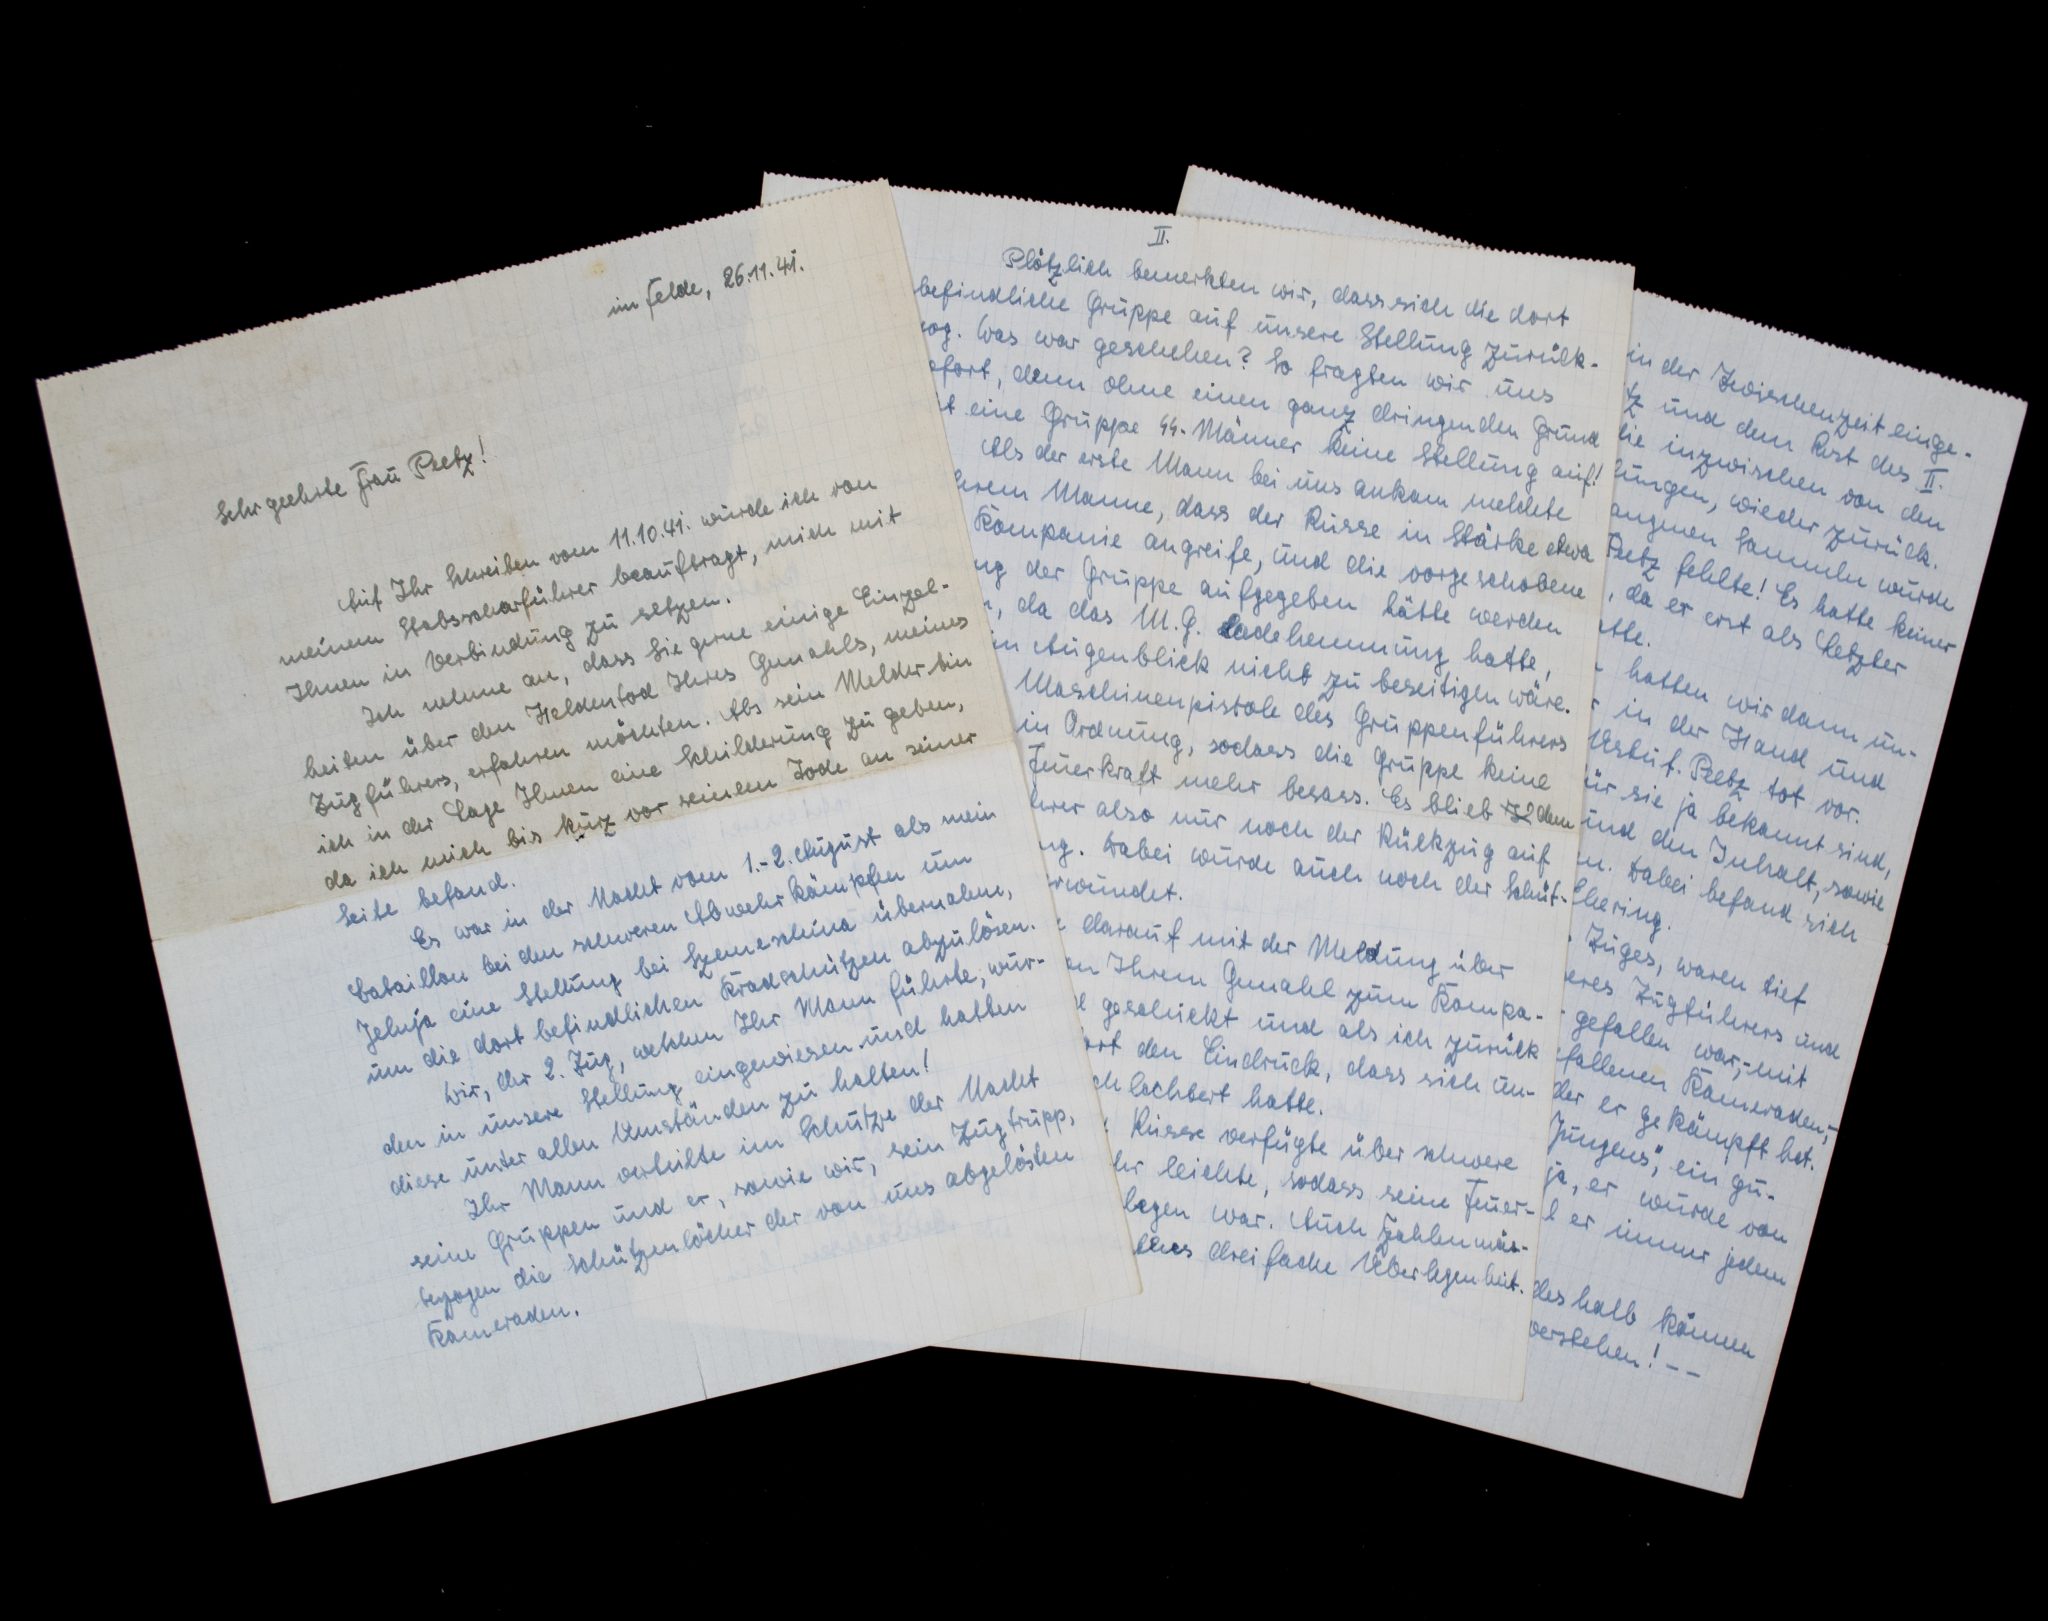 im Felde, 26.11.41.
Sehr geehrte Frau Pretz!
Auf Ihr Schreiben vom 11.10.41. wurde ich von
meinem Stabsscharführer beauftragt, mich mit
Ihnen in Verbindung zu setzen.
Ich nehme an, dass Sie gerne einige Einzel-
heiten über den Heldentod Ihres Gemahls, meines
Zugführers, erfahren möchten. Als sein Melder bin
ich in der Lage Ihnen eine Schilderung zu geben,
da ich mich bis kurz vor seinem Tode an seiner
Seite befand.
Es war in der Nacht vom 1.-2. August als mein
Bataillon bei den schweren Abwehrkämpfen um
Jelnja eine Stellung bei übernahm,
um die dort befindlichen Kradschützen abzulösen.
Wir, der 2. Zug, welchen Ihr Mann führte, wur-
den in unsere Stellung eingewiesen und hatten
diese unter allen Umständen zu halten!
Ihr Mann verteilte im Schutze der Nacht
seine Gruppen und er, sowie wir, sein Zugtrupp,
bezogen die Schützenlöcher der von uns abgelösten
Kameraden.
II.
Plötzlich bemerkten wir, dass sich die dort
befindliche Gruppe auf unsere Stellung zurück-
zog. Was war geschehen? So fragten wir uns
sofort, denn ohne einen ganz dringenden Grund
eine Gruppe SS-Männer keine Stellung auf!
Als der erste Mann bei uns ankam meldete
Manne, dass der Russe in Stärke etwa
Kompanie angreife, und die vorgeschobene
der Gruppe aufgegeben hätte werden
da das M.G. Ladehemmung hatte,
Augenblick nicht zu beseitigen wäre.
Maschinenpistole des Gruppenführers
in Ordnung, sodass die Gruppe keine
Feuerkraft mehr besass. Es blieb dem
also nur noch der Rückzug auf
Dabei wurde auch noch der Schüt-
darauf mit der Meldung über
Ihrem Gemahl zum Kompa-
geschickt und als ich zurück
den Eindruck, dass sich un-
hatte.
Russe verfügte über schwere
leichte, sodass seine Feuer-
war. Auch zahlenmäs-
dreifache Überlegenheit.
in der Zwischenzeit einge-
und dem Rest des II.
die inzwischen von den
wieder zurück.
Sammeln wurde
Pretz fehlte! Es hatte keiner
da er erst als Letzter
hatten wir dann un-
in der Hand und
Ustuf. Pretz tot vor.
sie ja bekannt sind,
und den Inhalt, sowie
Dabei befand sich
Ehering.
Zuges, waren tief
Zugführers und
gefallen war,-mit
Kameraden,-
der er gekämpft hat.
Jungens", ein gu-
ja, er wurde von
er immer jedem
deshalb können
verstehen! --